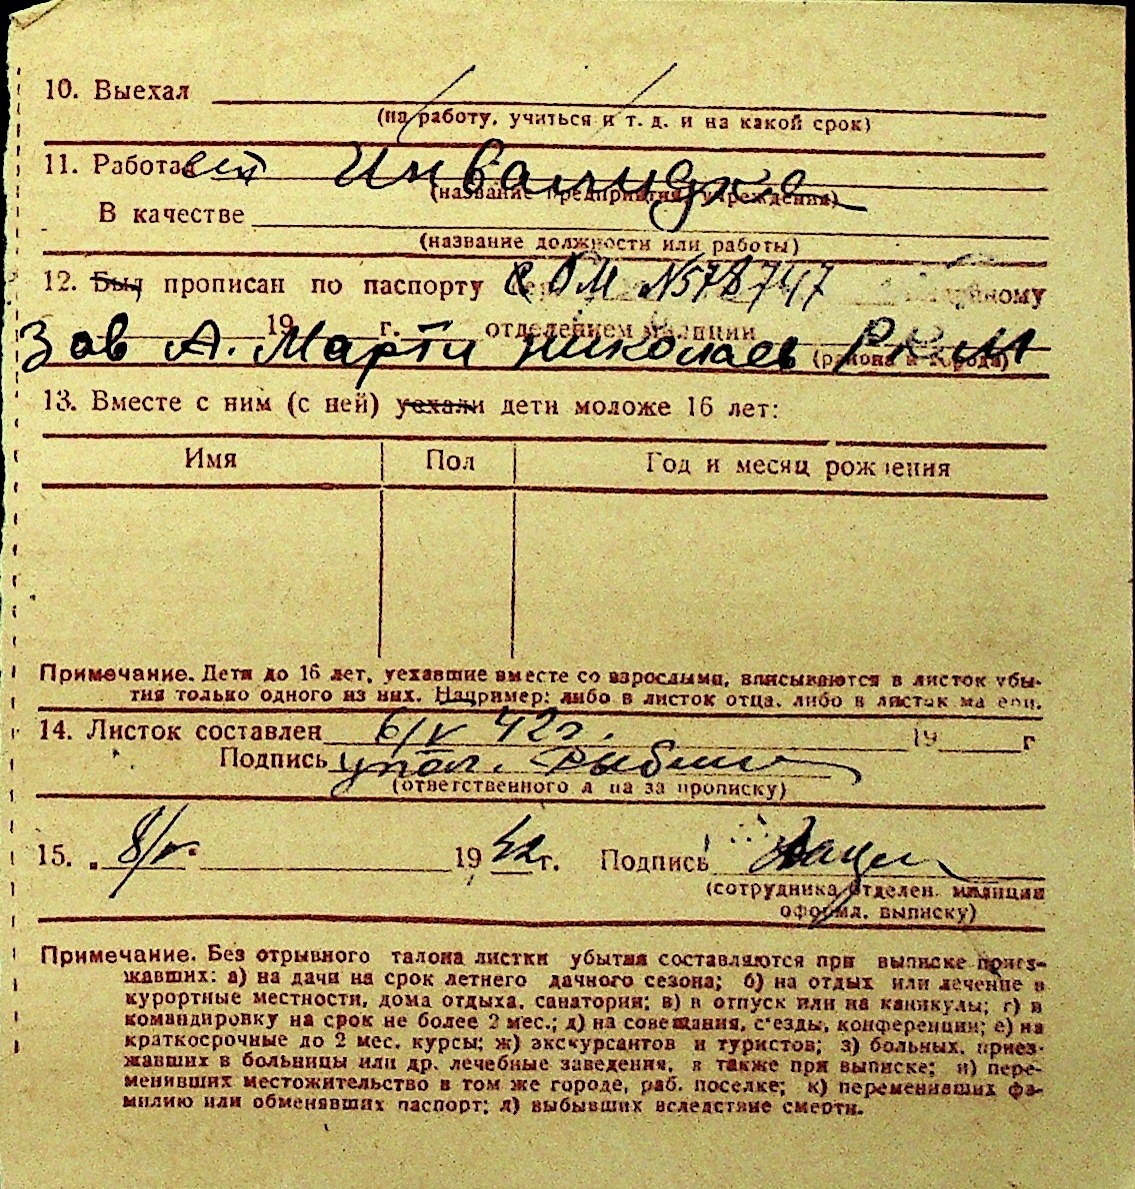 10. Выехал
(на работу, учиться и т. д. и на какой срок)
11. Работает Инвалидка
(название предприятия, учреждения)
В качестве
(название должности или работы)
12. Был прописан по паспорту с ОМ №578747
19 г. отделением милиции
Зав А. Марти Николаев
(района и города)
13. Вместе с ним (с ней) уехали дети моложе 16 лет:
Имя Пол Год и месяц рождения
Примечание. Дети до 16 лет, уехавшие вместе со взрослыми, вписываются в листок убы-
тия только одного из них. Например: либо в листок отца, либо в листок матери.
14. Листок составлен 6/V 42г. 19 г
Подпись упол.
(ответственного лица за прописку)
15. 8/V 1942 г. Подпись
(сотрудника отделен. милиции
оформл. выписку)
Примечание. Без отрывного талона листки убытия составляются при выписке приез-
жавших: а) на дачи на срок летнего дачного сезона; б) на отдых или лечение в
курортные местности, дома отдыха, санатории; в) в отпуск или на каникулы; г) в
командировку на срок не более 2 мес.; д) на совещания, с'езды, конференции; е) на
краткосрочные до 2 мес. курсы; ж) экскурсантов и туристов; з) больных, приез-
жавших в больницы или др. лечебные заведения, а также при выписке; и) пере-
менивших местожительство в том же городе, раб. поселке; к) переменивших фа-
милию или обменявших паспорт; л) выбывших вследствие смерти.